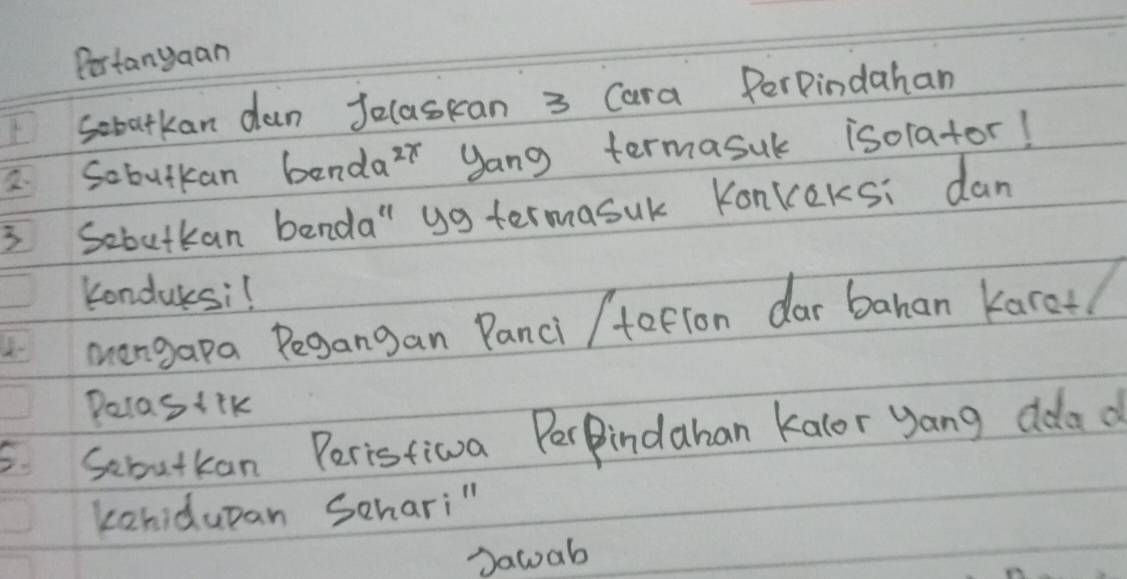 Pertanyaan
1. Sebutkan dan Jelaskan 3 Cara Perpindahan
2. Sebutkan benda²x yang termasuk isolator!
3 Sebutkan benda" yg termasuk Konveksi dan
Konduksi!
4. mengapa Pegangan Panci/teflon dar bahan Karet/
Pelastik
5. Sebutkan Peristiwa Perpindahan Kalor yang ada d
kehidupan Sehari"
Jawab